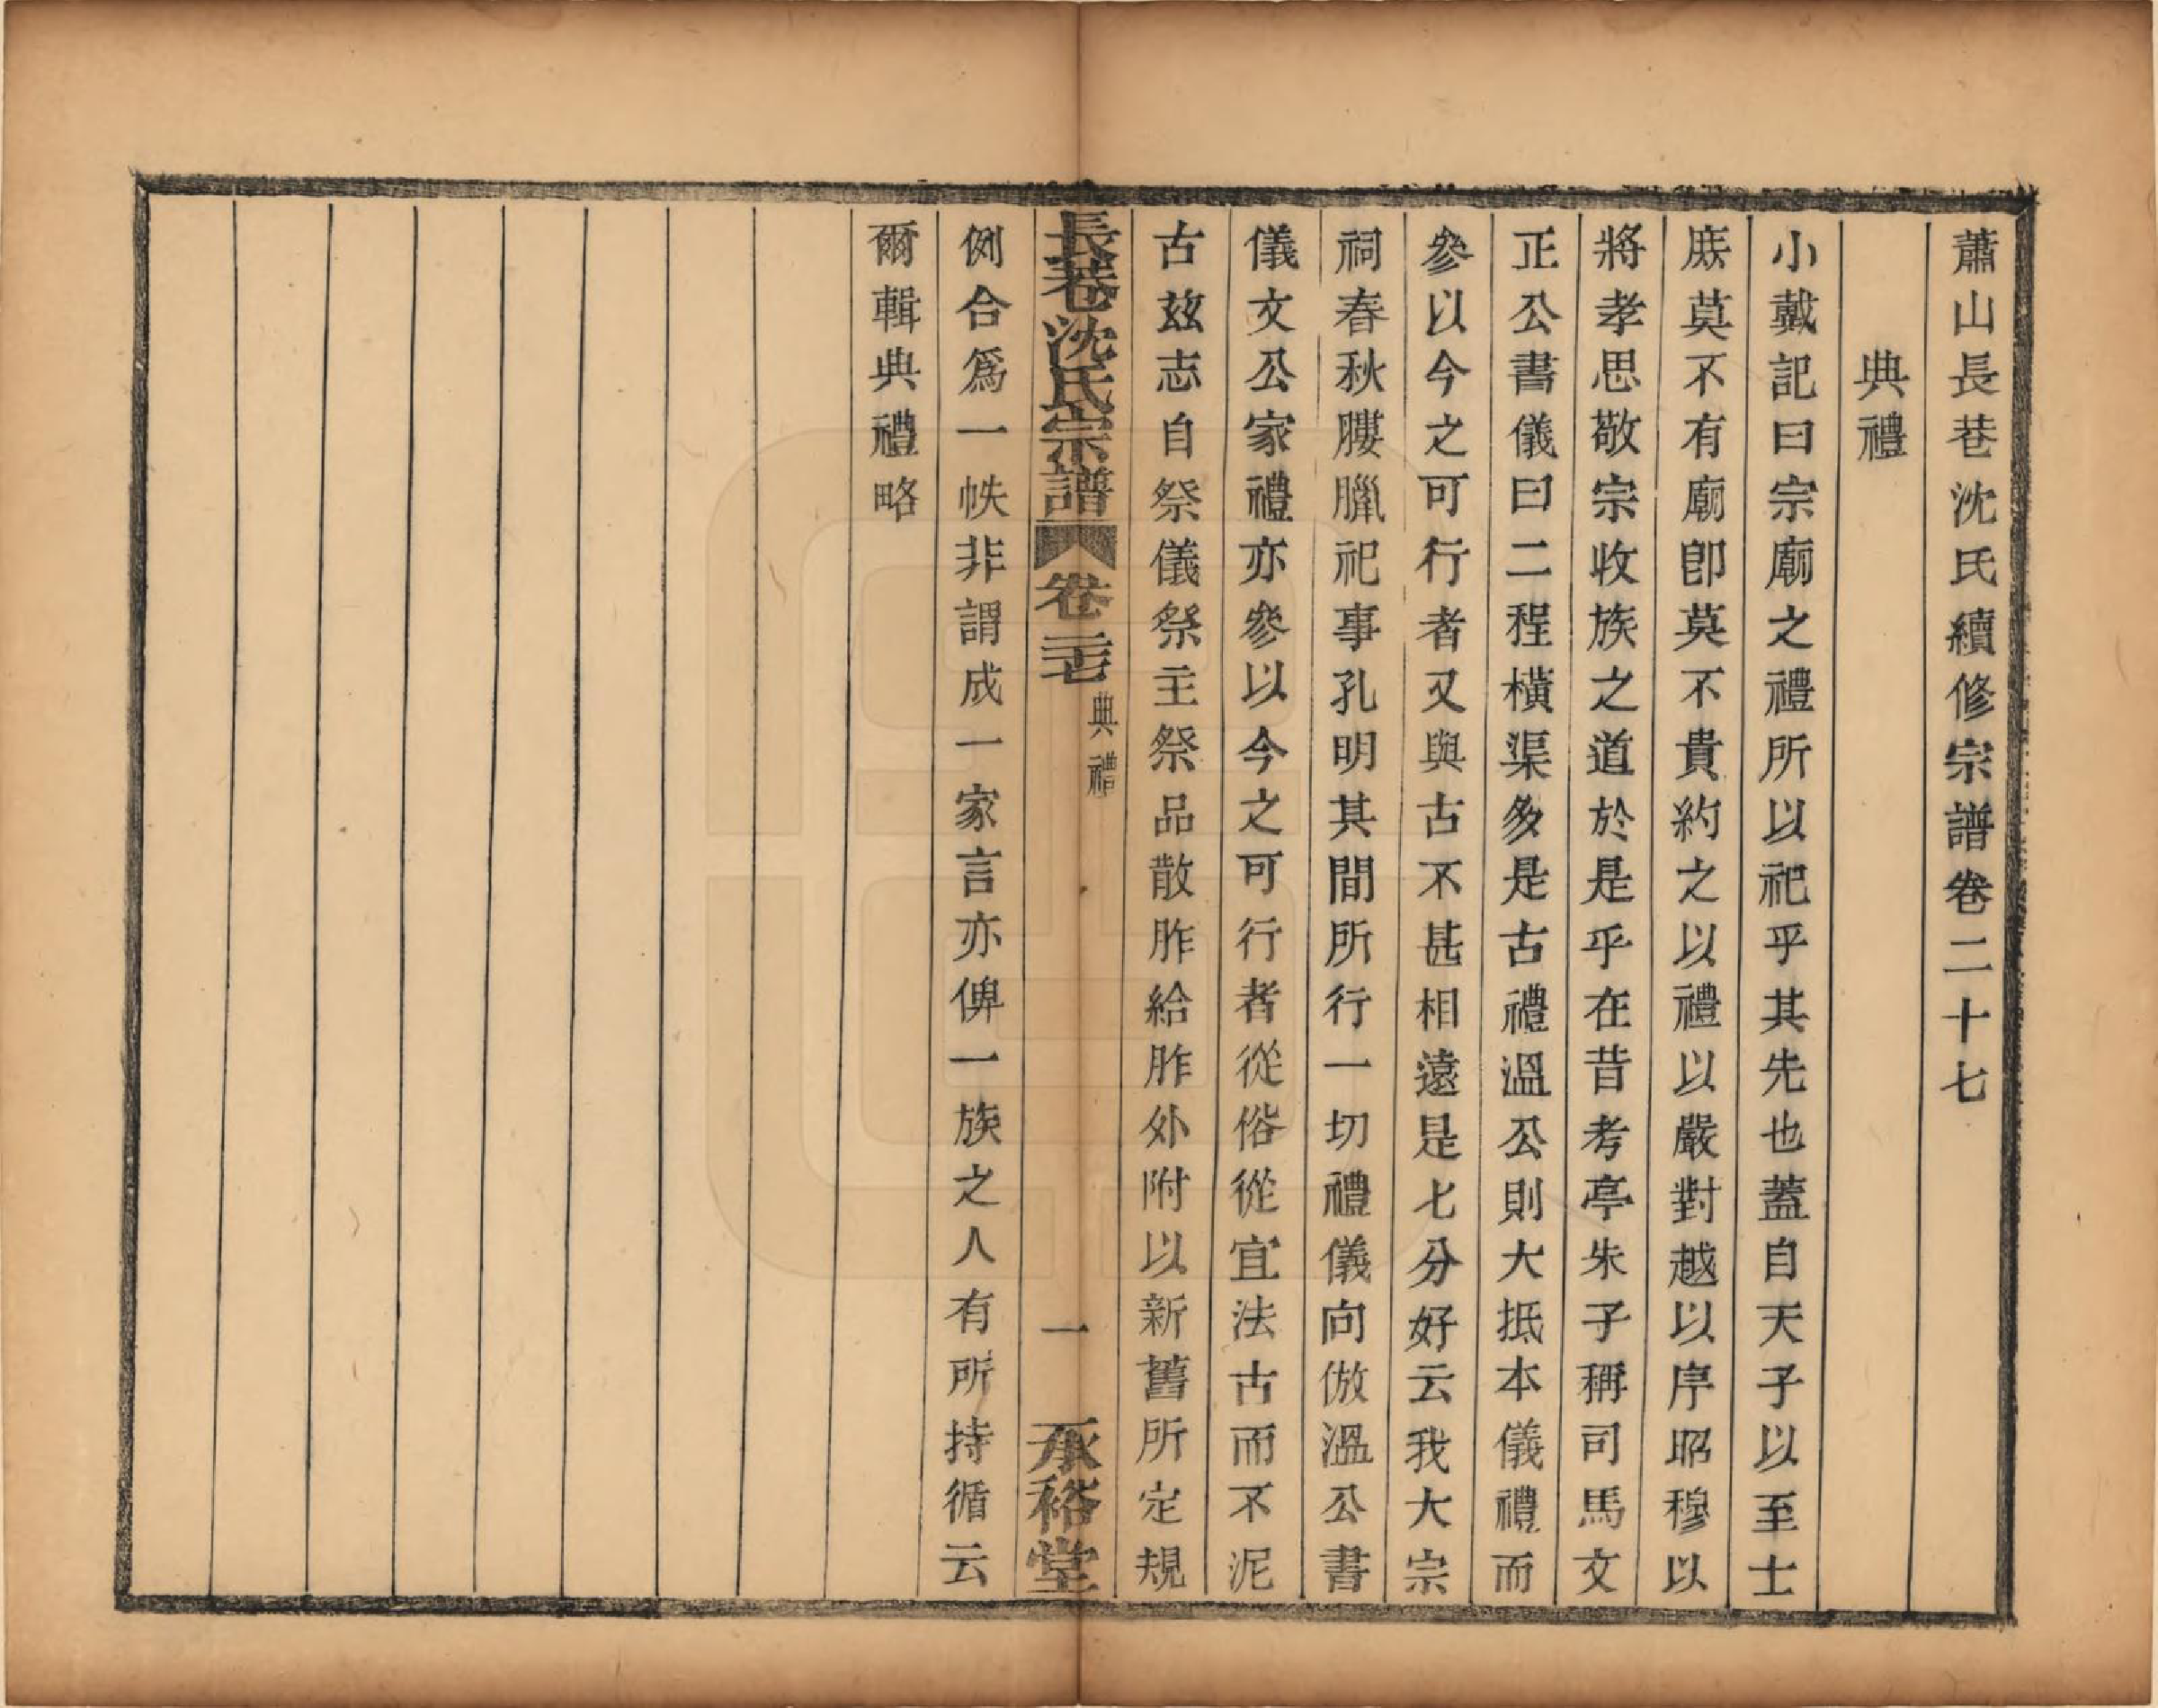 蕭山長巷沈氏續修宗譜卷二十七
典禮
小戴記曰宗廟之禮所以祀乎其先也蓋自天子以至士
庶莫不有廟卽莫不貴約之以禮以嚴對越以序昭穆以
將孝思敬宗收族之道於是乎在昔考亭朱子稱司馬文
正公書儀曰二程橫渠多是古禮溫公則大抵本儀禮而
參以今之可行者又與古不甚相遠是七分好云我大宗
祠春秋膢臘祀事孔明其間所行一切禮儀向倣溫公書
儀文公家禮亦參以今之可行者從俗從宜法古而不泥
古茲志自祭儀祭主祭品散胙給胙外附以新舊所定規
長巷沈氏宗譜 卷二十七 典禮 一 承裕堂
例合爲一帙非謂成一家言亦俾一族之人有所持循云
爾輯典禮略